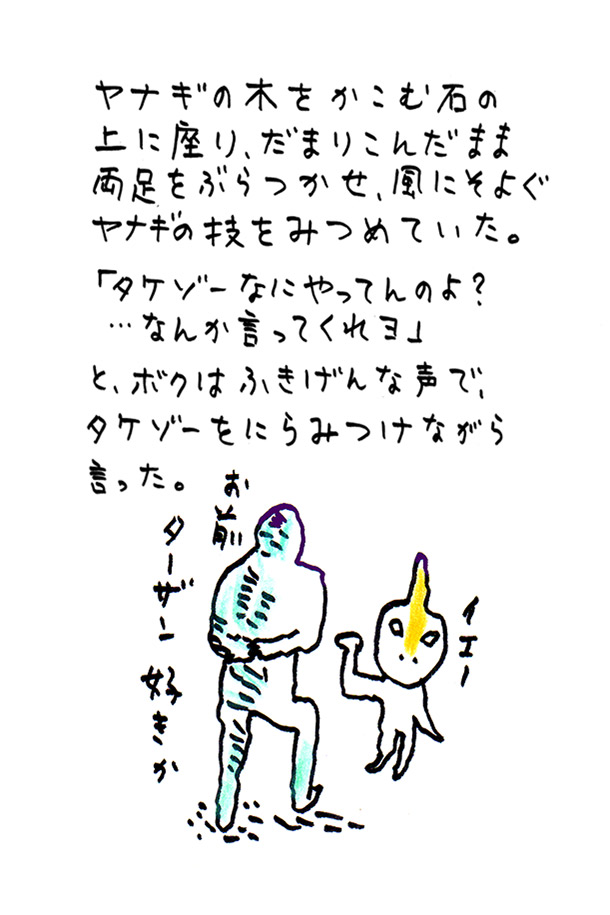 ヤナギの木をかこむ石の
上に座り、だまりこんだまま
両足をぶらつかせ、風にそよぐ
ヤナギの枝をみつめていた。
「タケゾーなにやってんのよ?
…なんか言ってくれヨ」
と、ボクはふきげんな声で、
タケゾーをにらみつけながら
言った。
お前
ターザン好きか
イエー